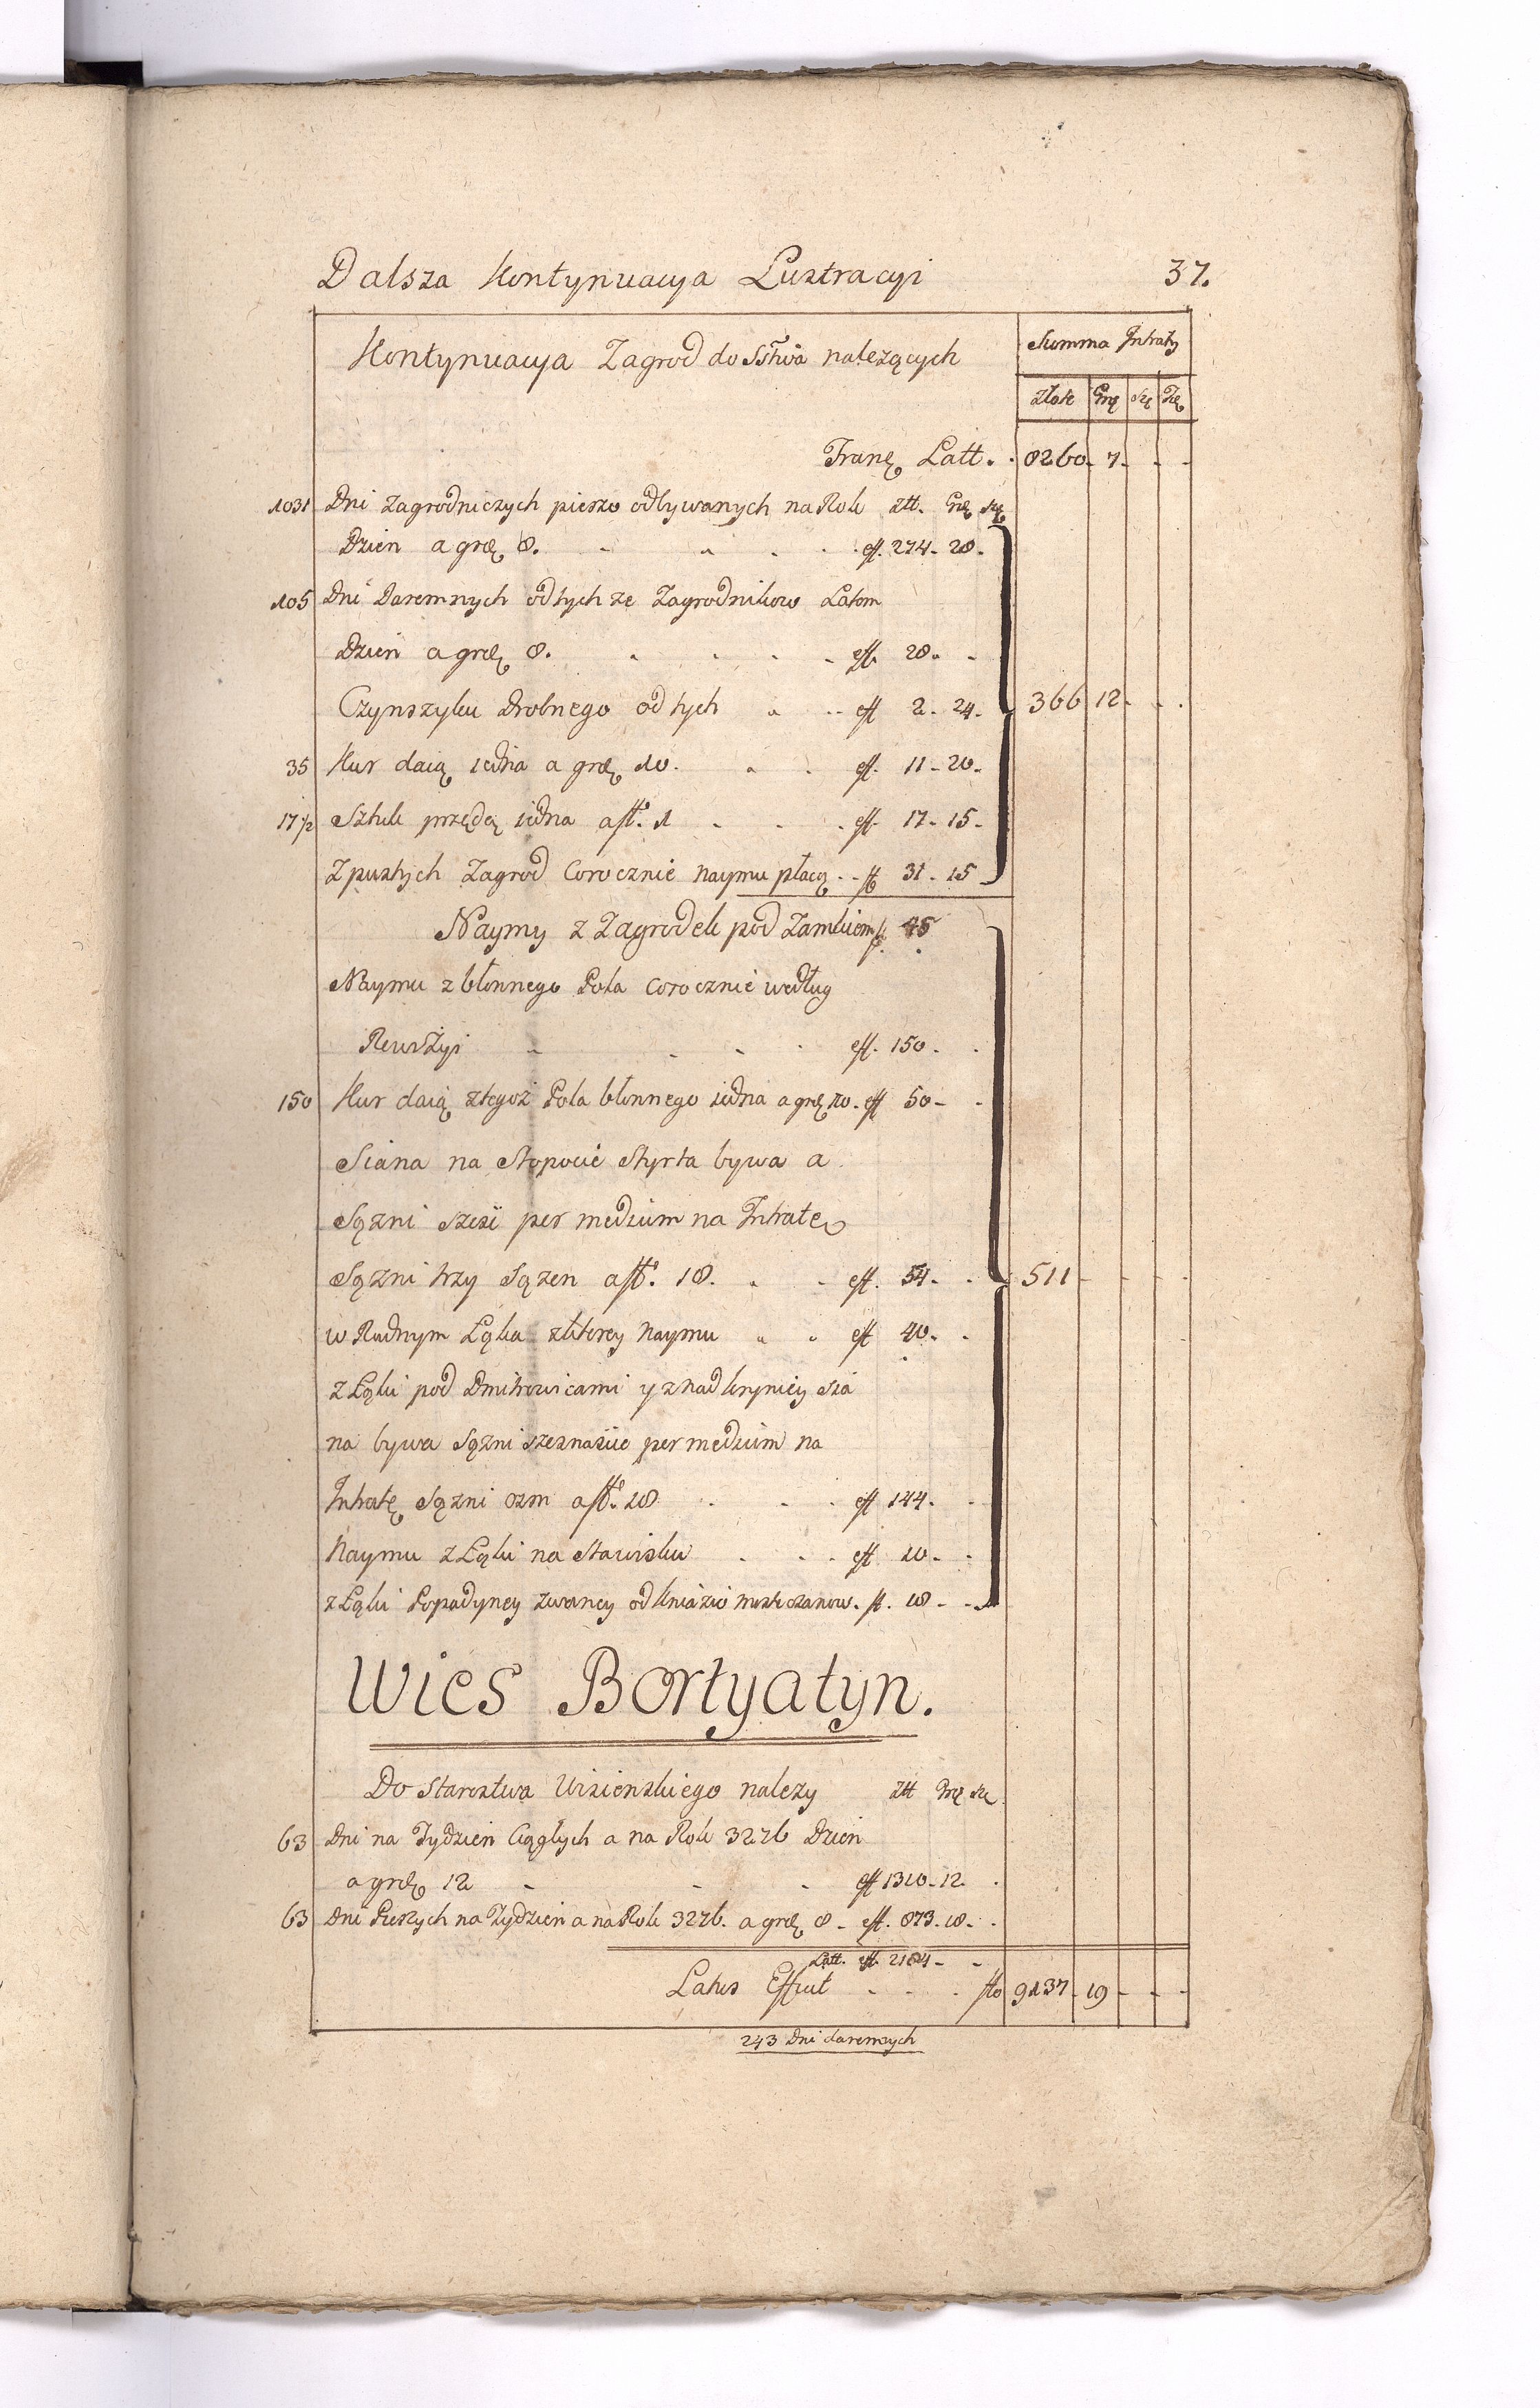 Dalsza Kontynuacya Lustracyi 37.
Kontynuacya Zagrod do Sstwa nalezących
Summa Intraty
Złote Grę Szę
Tranę Latt. 8260. 7.
1031 Dni Zagrodniczych pieszo odbywanych na Rok ztt. Grę Szę
Dzien a grę 8. eff. 274. 28.
105 Dni Daremnych od tych ze Zagrodnikow Latom
Dzien a grę 8. eff. 28.
Czynszyku drobnego od tych eff 2. 24. 366 12
35 Kur daią iedna a grę 10. eff. 11. 20.
17½ Sztuk przędą iedna a fft. 1 eff. 17. 15.
Z pustych Zagrod Corocznie naymu płacą ff 31. 15
Naymy z Zagrodek pod Zamkiem ff. 45
Naymu z błonnego Pola corocznie według
Rewizyi eff. 150.
150 Kur daią z tegoż Pola błonnego iedna a grę 10. eff 50
Siana na Stopocie Styrta bywa a
Sązni szesc per medium na Intratę
Sązni trzy Sązen a fft. 18. eff. 54. 511
w Rudnym Łąka z ktorey Naymu eff 40.
z Łąki pod Dmitrowicami y z nad krynicy Sia
na bywa Sązni szesnascie per medium na
Intratę Sązni ozm a fft. 18 eff 144.
Naymu z Łąki na Stawisku eff 10.
z Łąki Popadyney zwaney od kniazio ff. 18
Wies Bortyatyn.
Do Starostwa Wisienskiego nalezy ztt Grę Szę
63 Dni na Tydzien Ciągłych a na Rok 3276 Dzien
a grę 12 eff 1310. 12.
63 Dni Pieszych na Tydzien a na Rok 3276. a grę 8. eff. 873. 18.
Latt. eff. 2184
Latus Effiuit flo 9137. 19
243 Dni daremnych